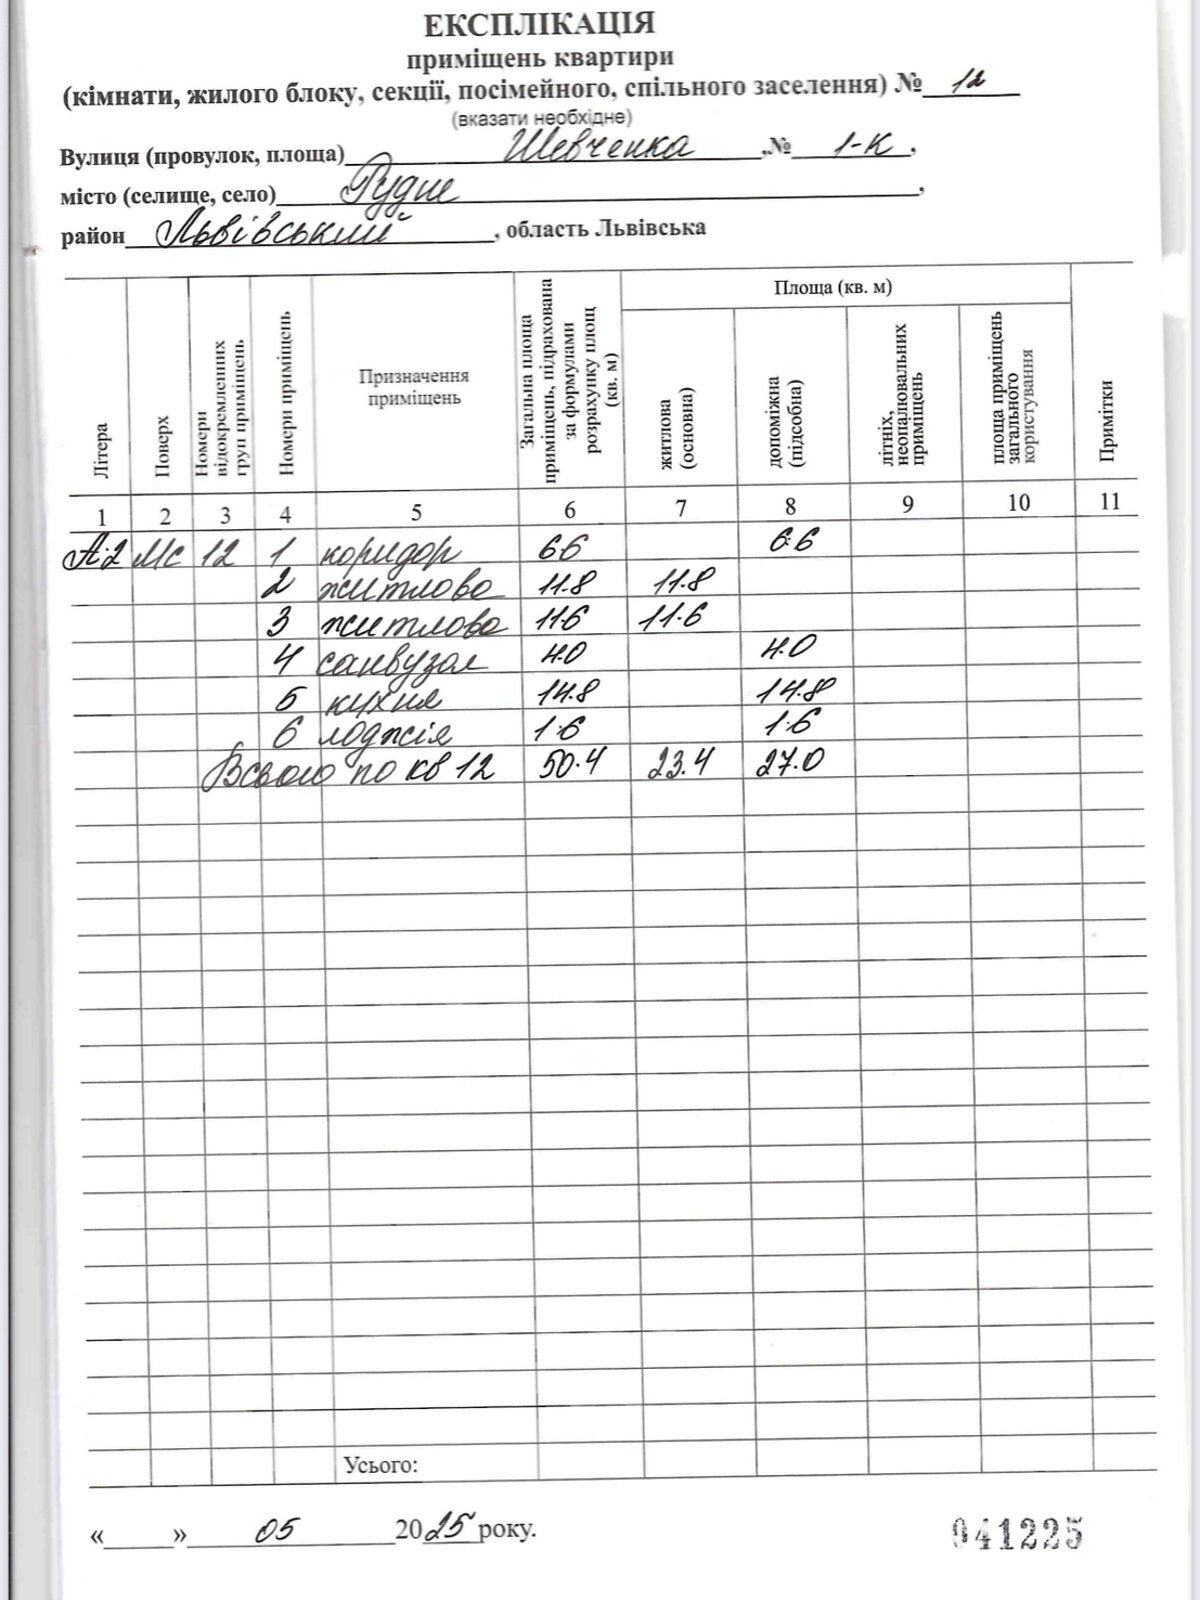 ЕКСПЛІКАЦІЯ
приміщень квартири
(кімнати, жилого блоку, секції, посімейного, спільного заселення) № 12
(вказати необхідне)
Вулиця (провулок, площа) Шевченка, № 1-К,
місто (селище, село) Рудне,
район Львівський, область Львівська
Літера Поверх Номери відокремленних груп приміщень Номери приміщень Призначення приміщень Загальна площа приміщень, підрахована за формулами розрахунку площ (кв. м) Площа (кв. м) житлова (основна) допоміжна (підсобна) літніх, неопалювальних приміщень площа приміщень загального користування Примітки
1 2 3 4 5 6 7 8 9 10 11
А-2 Мс 12 1 коридор 6.6 6.6
2 житлова 11.8 11.8
3 житлова 11.6 11.6
4 санвузол 4.0 4.0
5 кухня 14.8 14.8
6 лоджія 1.6 1.6
Всього по кв 12 50.4 23.4 27.0
Усього:
«_____» 05 2025 року.
941225